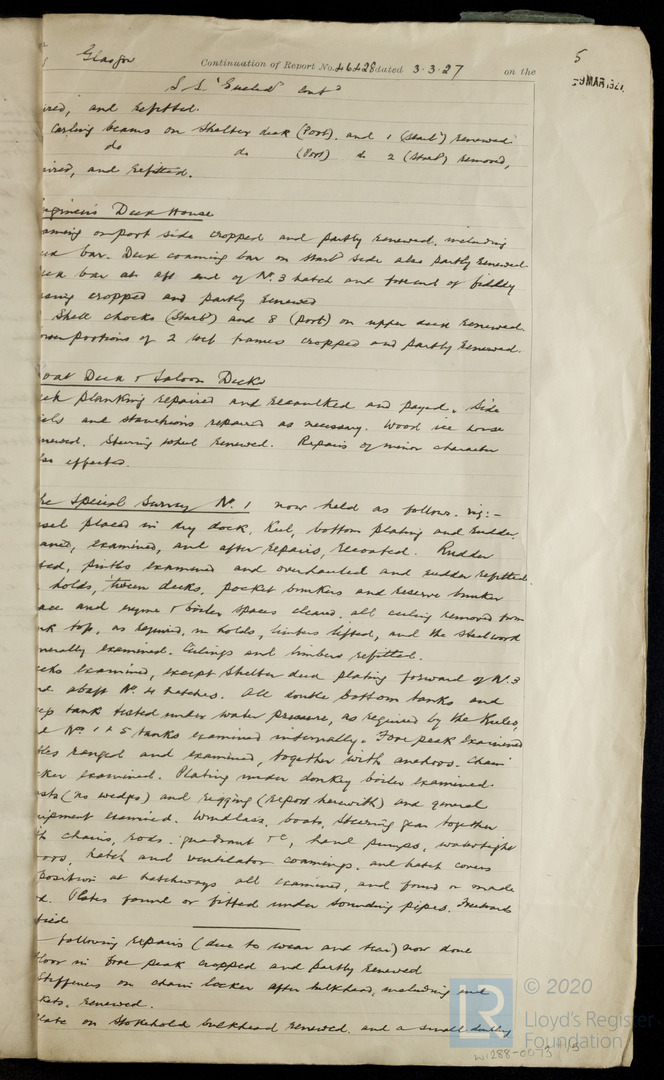 Glasgow Continuation of Report No. 46428 dated 3·3·27 on the
5
-9 MAR 1927
S.S. "Euclid" Contd
ired, and refitted.
Carling beams on Shelter deck (Port). and 1 (Starbd) renewed
do do (Port) do 2 (Starbd) removed,
aired, and refitted.
ngineers Deck House
oaming on port side cropped and partly renewed, including
eck bar. Deck coaming bar on Starbd side also partly renewed
eck bar at aft end of No. 3 hatch and fore end of fiddley
asing cropped and partly renewed
Shell chocks (Starbd) and 8 (port) on upper deck renewed.
ower portions of 2 web frames cropped and partly renewed.
oat Deck & Saloon Decks
eck planking repaired and recaulked and payed. Side
and stanchions repaired as necessary. Wood ice house
enewed. Steering wheel renewed. Repairs of minor character
lso effected.
he Special Survey No. 1 now held as follows. viz:-
ssel placed in dry dock, Keel, bottom plating and rudder
aned, examined, and after repairs, recoated. Rudder
ted, pintles examined and overhauled and rudder refitted.
holds, tween decks, pocket bunkers and reserve bunker
ace and engine & boiler spaces cleared, all ceiling removed from
nk top, as required, in holds, limbers lifted, and the steelwork
nerally examined. Ceilings and limbers refitted.
ecks examined, except Shelter deck plating forward of No. 3
nd abaft No. 4 hatches. All double bottom tanks and
eep tank tested under water pressure, as required by the Rules,
e Nos 1 & 5 tanks examined internally. Fore peak examined
bles ranged and examined, together with anchors. Chain
cker examined. Plating under donkey boiler examined.
sts (no wedges) and rigging (report herewith) and general
uipment examined. Windlass, boats, steering gear together
th chains, rods, quadrant &c, hand pumps, watertight
oors, hatch and ventilator coamings, and hatch covers
position at hatchways all examined, and found or made
d. Plates found or fitted under sounding pipes. Freeboard
ified
following repairs (due to wear and tear) now done
loor in fore peak cropped and partly renewed
Stiffeners on chain locker after bulkhead, including end
kets, renewed.
late on stokehold bulkhead renewed, and a small
© 2020
Lloyd's Register
Foundation
W1288-0073 1/5